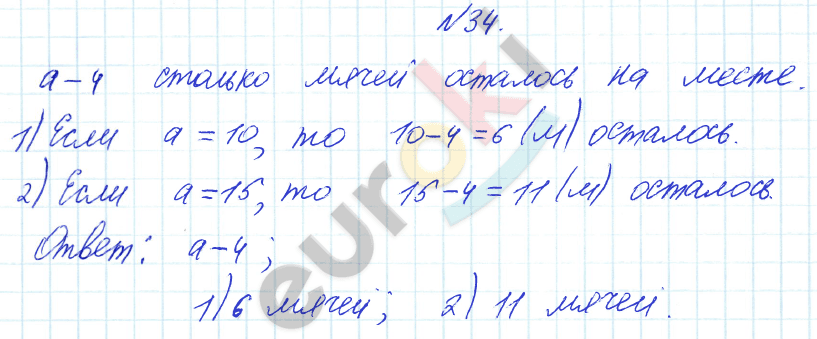 №34.
a-4 столько мячей осталось на месте.
1) Если a=10, то 10-4=6 (м) осталось.
2) Если a=15, то 15-4=11 (м) осталось.
Ответ: a-4;
1) 6 мячей; 2) 11 мячей.
euroki